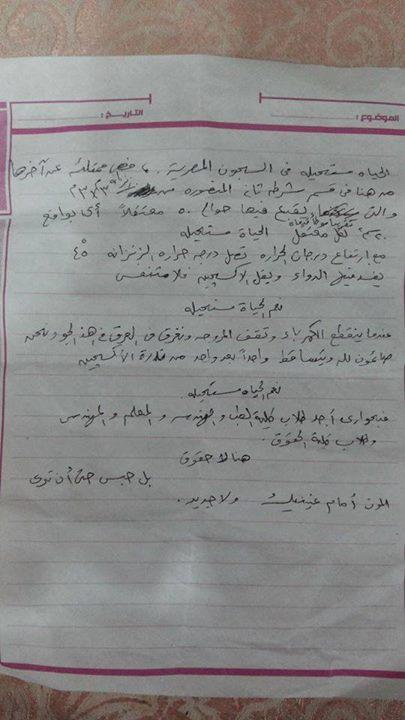 الموضوع :
التاريخ :
الحياه مستحيله فى السجون المصرية . ممتلئه عن آخرها
من هنا فى قسم شرطه ثانى المنصوره من ٣×٣
والتى يقبع فيها حوالى ٥٠ معتقلاً أى بواقع
لكل معتقل الحياة مستحيله
مع ارتفاع درجات الحراره تصل درجه حراره الزنزانه ٤٥°
يفسد فيها الدواء ويقل الاكسجين فلا متنفس
نعم الحياة مستحيله
عندما ينقطع الكهرباء وتقف المروحه ونغرق فى العرق فى هذا الجو ونحن
صائمون لله ويتساقط واحداً بعد واحد من قلة الأكسجين
نعم الحياة مستحيله
فبجوارى أجد طلاب كلية الطب والهندسه والمعلم والمهندس
وطلاب كلية الحقوق .
هنا لا حقوق
بل حبس حتى أن ترى
الموت أمام عينيك ولا جديد .